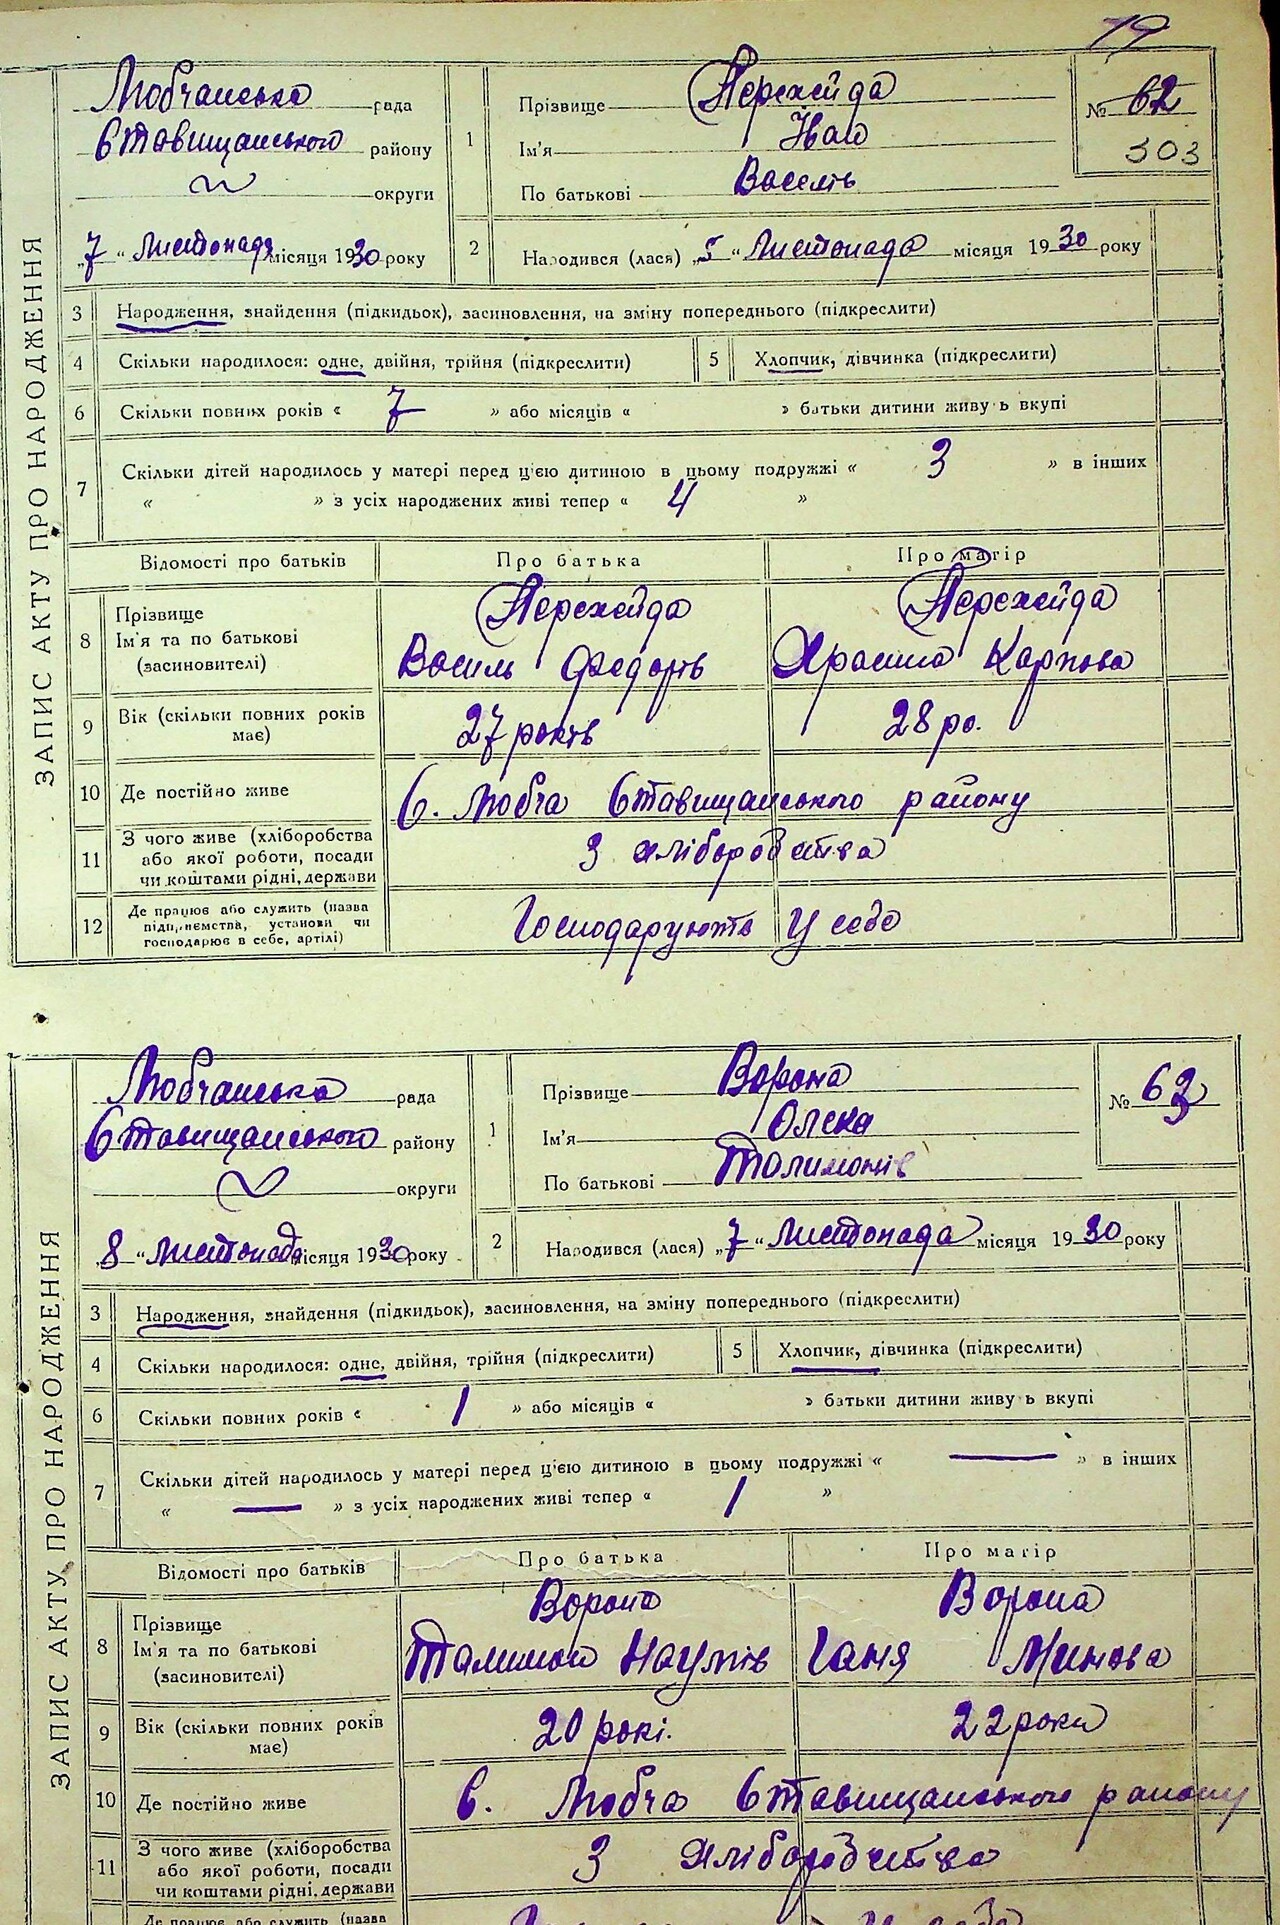 79
ЗАПИС АКТУ ПРО НАРОДЖЕННЯ
Любчанська рада
Ставищанського району
округи
„7“ Листопада місяця 1930 року
1
Прізвище Перехейда
Ім'я Іван
По батькові Василів
№ 62
303
2
Народився (лася) „5“ Листопада місяця 1930 року
3 Народження, знайдення (підкидьок), засиновлення, на зміну попереднього (підкреслити)
4 Скільки народилося: одне, двійня, трійня (підкреслити) 5 Хлопчик, дівчинка (підкреслити)
6 Скільки повних років « 7 » або місяців « » батьки дитини живу ь вкупі
7 Скільки дітей народилось у матері перед ц'єю дитиною в цьому подружжі « 3 » в інших
« » з усіх народжених живі тепер « 4 »
Відомості про батьків Про батька Про матір
8 Прізвище Перехейда Перехейда
Ім'я та по батькові Василь Федорів Карпова
(засиновителі)
9 Вік (скільки повних років має) 27 років 28 ро.
10 Де постійно живе С. Любча Ставищанського району
11 З чого живе (хліборобства
або якої роботи, посади З хліборобства
чи коштами рідні, держави
12 Де працює або служить (назва
підприємства, установи чи Господарують У себе
господарює в себе, артілі)
ЗАПИС АКТУ ПРО НАРОДЖЕННЯ
Любчанська рада
Ставищанського району
округи
„8“ Листопада місяця 1930 року
1
Прізвище Ворона
Ім'я Олека
По батькові Талимонів
№ 63
2
Народився (лася) „7“ Листопада місяця 1930 року
3 Народження, знайдення (підкидьок), засиновлення, на зміну попереднього (підкреслити)
4 Скільки народилося: одне, двійня, трійня (підкреслити) 5 Хлопчик, дівчинка (підкреслити)
6 Скільки повних років « 1 » або місяців « » батьки дитини живу ь вкупі
7 Скільки дітей народилось у матері перед ц'єю дитиною в цьому подружжі « — » в інших
« — » з усіх народжених живі тепер « 1 »
Відомості про батьків Про батька Про матір
8 Прізвище Ворона Ворона
Ім'я та по батькові Талимон Наумів Ганя Минова
(засиновителі)
9 Вік (скільки повних років має) 20 рокі. 22 роки
10 Де постійно живе С. Любча Ставищанського району
11 З чого живе (хліборобства
або якої роботи, посади З хліборобства
чи коштами рідні, держави
Де працює або служить (назва